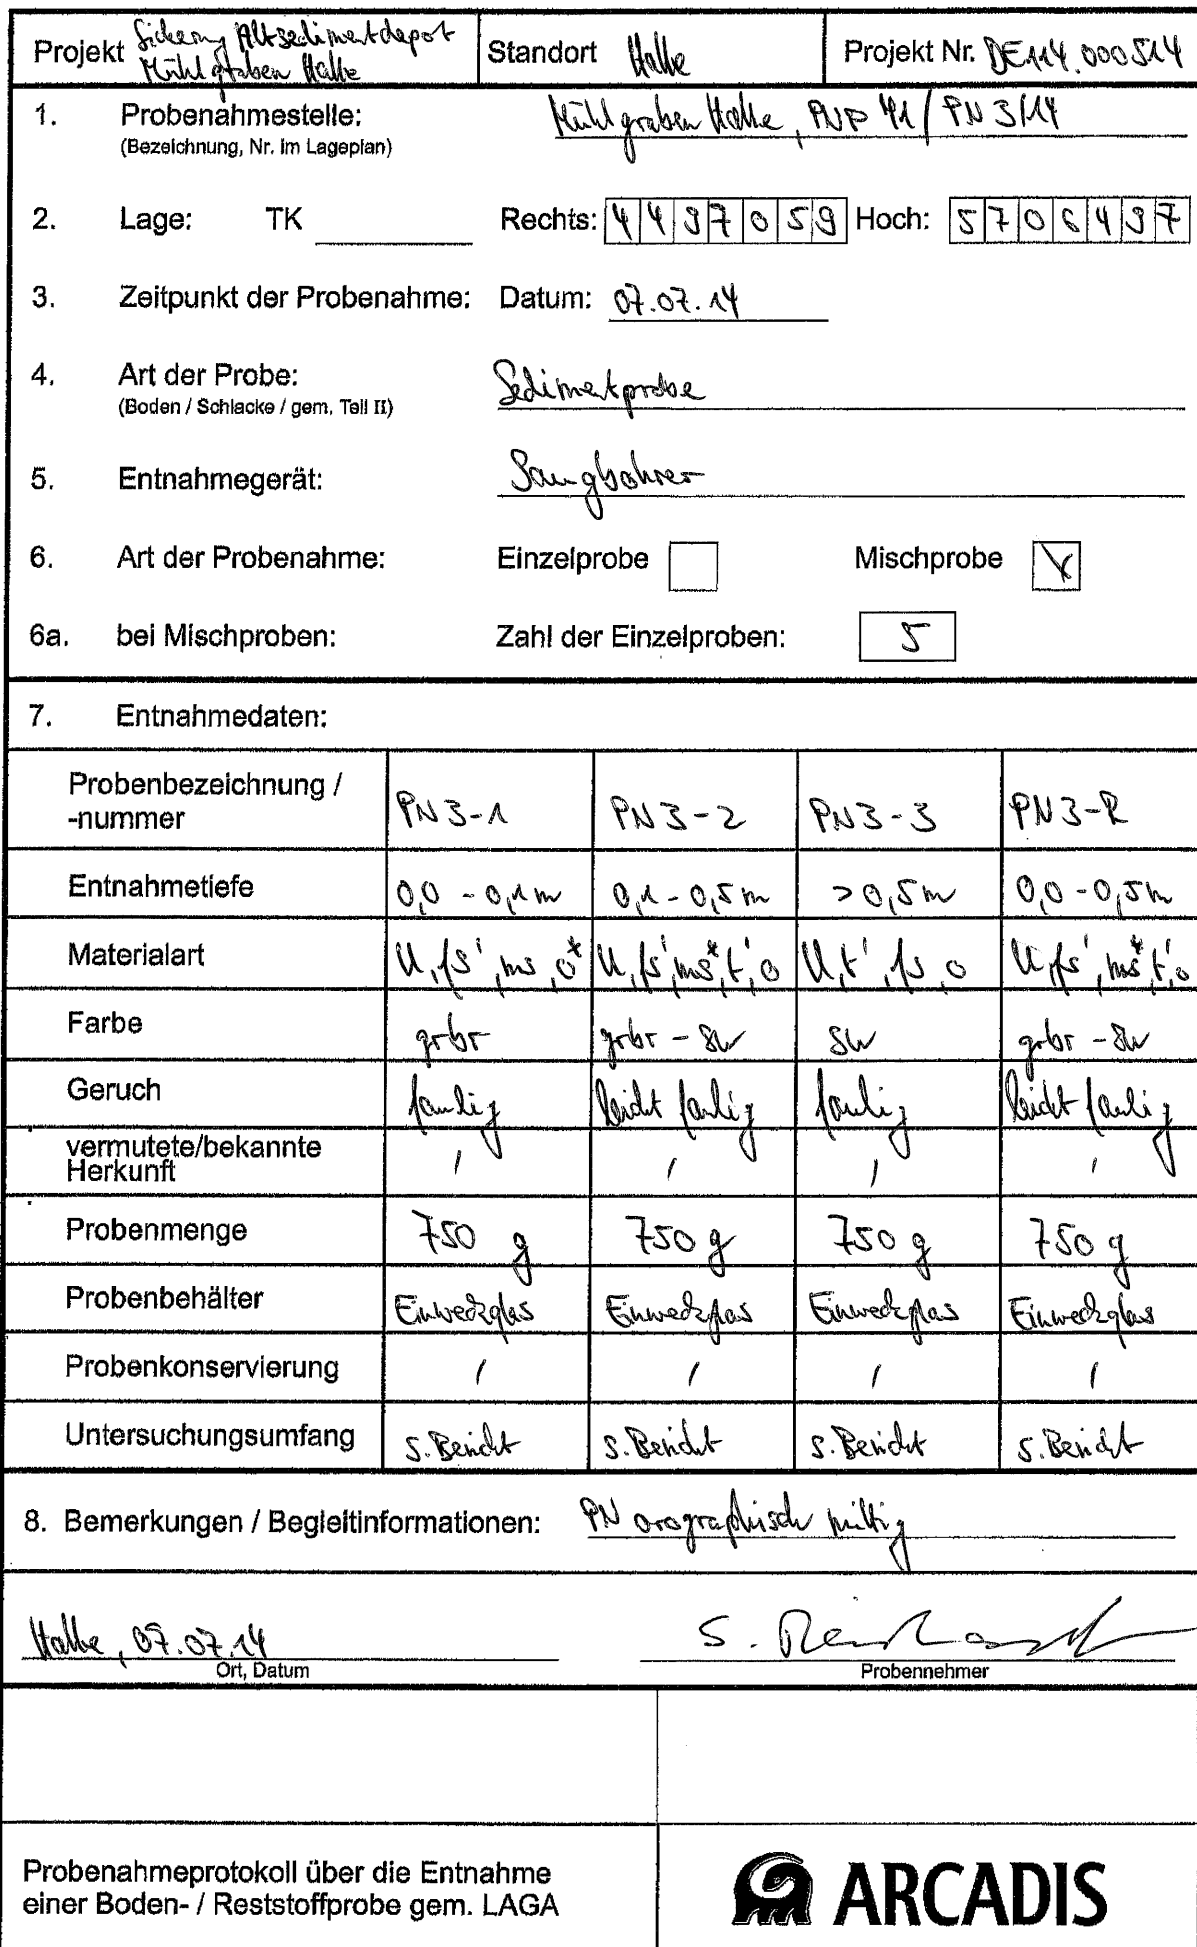 Projekt Sicherung Altsedimentdepot
Mühlgraben Halle
Standort Halle
Projekt Nr. DE114.000514
1. Probenahmestelle: Mühlgraben Halle, PNP 41 / PN 3/14
(Bezeichnung, Nr. im Lageplan)
2. Lage: TK Rechts: 4497059 Hoch: 5706497
3. Zeitpunkt der Probenahme: Datum: 07.07.14
4. Art der Probe: Sedimentprobe
(Boden / Schlacke / gem. Teil II)
5. Entnahmegerät: Saugbohrer
6. Art der Probenahme: Einzelprobe Mischprobe X
6a. bei Mischproben: Zahl der Einzelproben: 5
7. Entnahmedaten:
Probenbezeichnung /
-nummer PN3-1 PN3-2 PN3-3 PN3-R
Entnahmetiefe 0,0 - 0,1m 0,1 - 0,5m >0,5m 0,0 - 0,5m
Materialart U, fs', ms, o* U, fs', ms*, t', o U, t', fs, o U, fs', ms*, t', o
Farbe grbr grbr - sw sw grbr - sw
Geruch faulig leicht faulig faulig leicht faulig
vermutete/bekannte
Herkunft / / / /
Probenmenge 750 g 750 g 750 g 750 g
Probenbehälter Einweckglas Einweckglas Einweckglas Einweckglas
Probenkonservierung / / / /
Untersuchungsumfang s. Bericht s. Bericht s. Bericht s. Bericht
8. Bemerkungen / Begleitinformationen: PN orographisch mittig
Halle, 07.07.14
Ort, Datum
S.
Probennehmer
Probenahmeprotokoll über die Entnahme
einer Boden- / Reststoffprobe gem. LAGA
ARCADIS